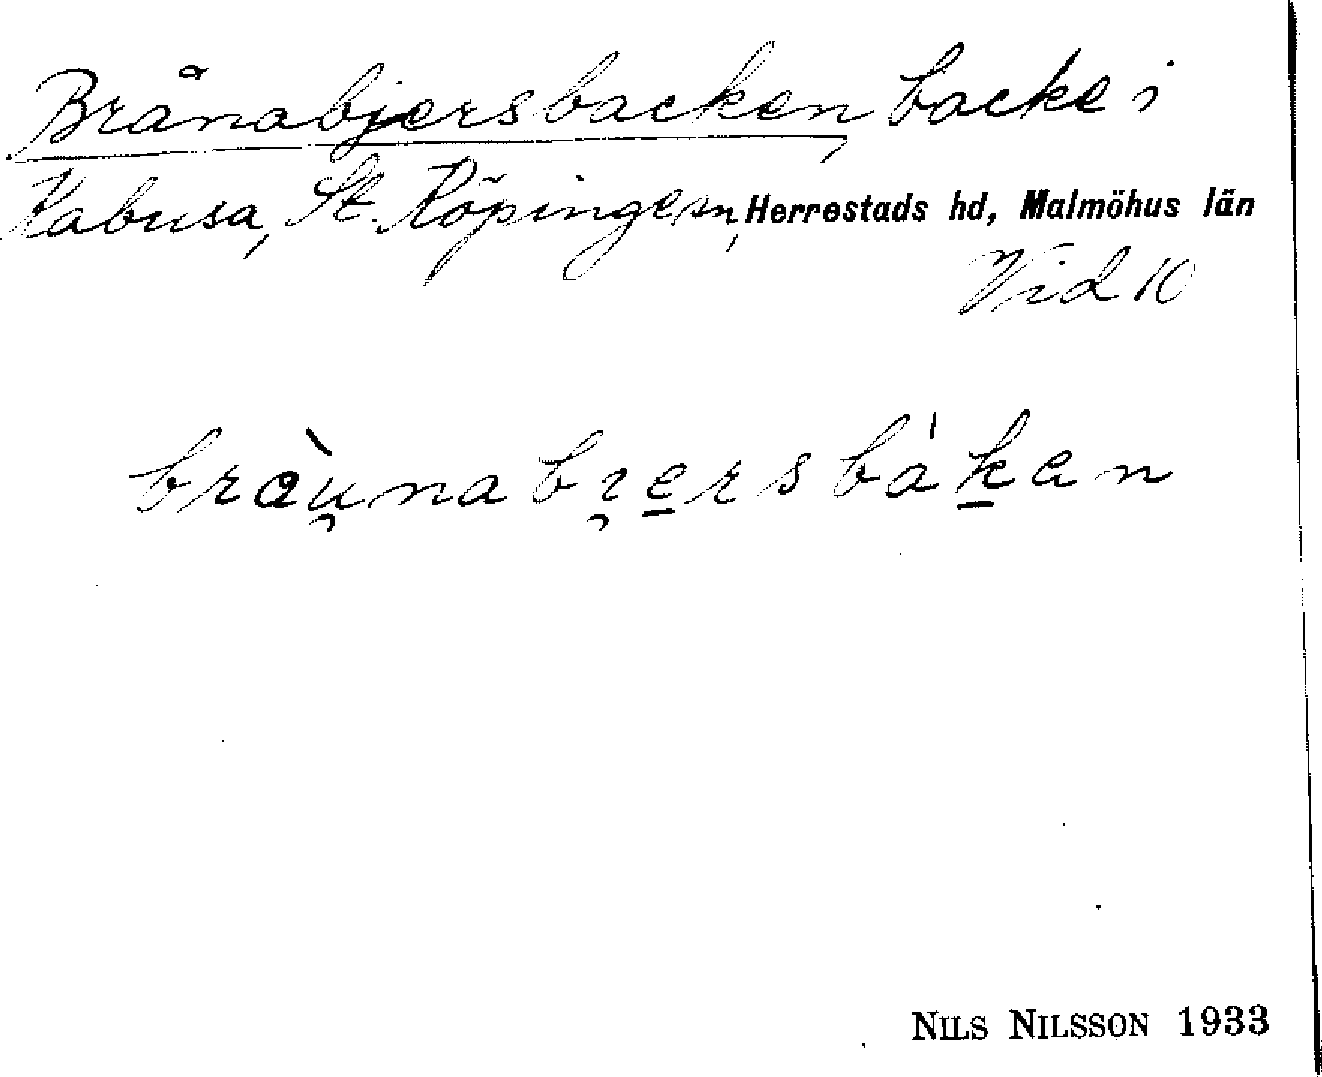 Brånabjersbacken, backe i
Kabusa, St. Köpinge sn, Herrestads hd, Malmöhus län
Vid 10
bràu̯nabi̯e̠rsbák̠en
NILS NILSSON 1933